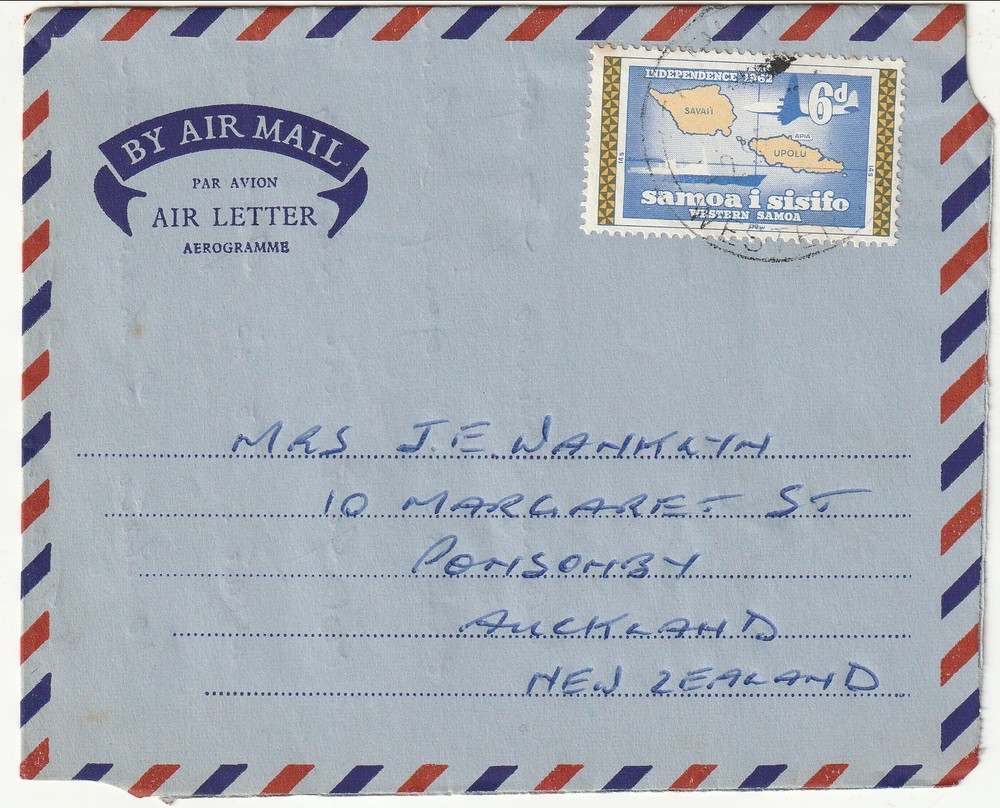 BY AIR MAIL
PAR AVION
AIR LETTER
AEROGRAMME
INDEPENDENCE 1962
6d
SAVAI'I
APIA
UPOLU
samoa i sisifo
WESTERN SAMOA
WESTE
MRS J.E. WANKLYN
10 MARGARET ST
PONSONBY
AUCKLAND
NEW ZEALAND